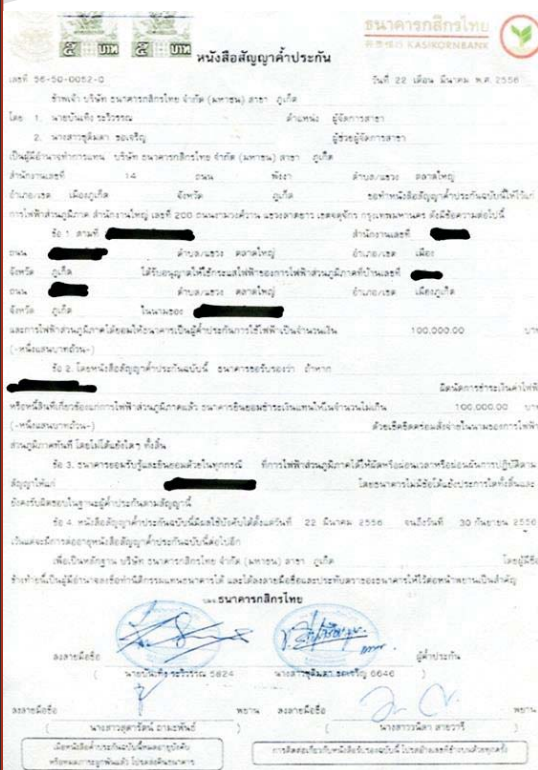 ๕ บาท ๕ บาท
ธนาคารกสิกรไทย
KASIKORNBANK
หนังสือสัญญาค้ำประกัน
เลขที่ 56-50-0052-0 วันที่ 22 เดือน มีนาคม พ.ศ. 2556
ข้าพเจ้า บริษัท ธนาคารกสิกรไทย จำกัด (มหาชน) สาขา ภูเก็ต
โดย 1. นายบันเทิง ระวิวรรณ ตำแหน่ง ผู้จัดการสาขา
2. นางสาวชุติมดา ชอเจริญ ผู้ช่วยผู้จัดการสาขา
เป็นผู้มีอำนาจทำการแทน บริษัท ธนาคารกสิกรไทย จำกัด (มหาชน) สาขา ภูเก็ต
สำนักงานเลขที่ 14 ถนน พังงา ตำบล/แขวง ตลาดใหญ่
อำเภอ/เขต เมืองภูเก็ต จังหวัด ภูเก็ต ขอทำหนังสือสัญญาค้ำประกันฉบับนี้ให้ไว้แก่
การไฟฟ้าส่วนภูมิภาค สำนักงานใหญ่ เลขที่ 200 ถนนงามวงศ์วาน แขวงลาดยาว เขตจตุจักร กรุงเทพมหานคร ดังมีข้อความต่อไปนี้
ข้อ 1. ตามที่ สำนักงานเลขที่
ถนน ตำบล/แขวง ตลาดใหญ่ อำเภอ/เขต เมือง
จังหวัด ภูเก็ต ได้รับอนุญาตให้ใช้กระแสไฟฟ้าของการไฟฟ้าส่วนภูมิภาคที่บ้านเลขที่
ถนน ตำบล/แขวง ตลาดใหญ่ อำเภอ/เขต เมืองภูเก็ต
จังหวัด ภูเก็ต ในนามของ
และการไฟฟ้าส่วนภูมิภาคได้ยอมให้ธนาคารเป็นผู้ค้ำประกันการใช้ไฟฟ้าเป็นจำนวนเงิน 100,000.00 บาท
(-หนึ่งแสนบาทถ้วน-)
ข้อ 2. โดยหนังสือสัญญาค้ำประกันฉบับนี้ ธนาคารขอรับรองว่า ถ้าหาก
ผิดนัดการชำระเงินค่าไฟฟ้า
หรือหนี้สินที่เกี่ยวข้องแก่การไฟฟ้าส่วนภูมิภาคแล้ว ธนาคารยินยอมชำระเงินแทนให้ในจำนวนไม่เกิน 100,000.00 บาท
(-หนึ่งแสนบาทถ้วน-) ด้วยเช็คขีดคร่อมสั่งจ่ายในนามของการไฟฟ้า
ส่วนภูมิภาคทันที โดยไม่โต้แย้งใดๆ ทั้งสิ้น
ข้อ 3. ธนาคารยอมรับรู้และยินยอมด้วยในทุกกรณี ที่การไฟฟ้าส่วนภูมิภาคได้ให้ผัดหรือผ่อนเวลาหรือผ่อนผันการปฏิบัติตาม
สัญญาให้แก่ โดยธนาคารไม่มีข้อโต้แย้งประการใดทั้งสิ้นและ
ยังคงรับผิดชอบในฐานะผู้ค้ำประกันตามสัญญานี้
ข้อ 4. หนังสือสัญญาค้ำประกันฉบับนี้มีผลใช้บังคับได้ตั้งแต่วันที่ 22 มีนาคม 2556 จนถึงวันที่ 30 กันยายน 2556
เว้นแต่จะมีการต่ออายุหนังสือสัญญาค้ำประกันฉบับนี้ต่อไปอีก
เพื่อเป็นหลักฐาน บริษัท ธนาคารกสิกรไทย จำกัด (มหาชน) สาขา ภูเก็ต โดยผู้มีชื่อ
ข้างท้ายนี้เป็นผู้มีอำนาจลงชื่อทำนิติกรรมแทนธนาคารได้ และได้ลงลายมือชื่อและประทับตราของธนาคารให้ไว้ต่อหน้าพยานเป็นสำคัญ
บมจ.ธนาคารกสิกรไทย
ลงลายมือชื่อ ผู้ค้ำประกัน
( นายบันเทิง ระวิวรรณ 5824 นางสาวชุติมดา ชอเจริญ 6646 )
ลงลายมือชื่อ พยาน ลงลายมือชื่อ พยาน
( นางสาวสุดารัตน์ ถามะพันธ์ ) ( นางสาววนิดา สายวารี )
เมื่อหนังสือค้ำประกันฉบับนี้หมดอายุบังคับ
หรือหมดภาระผูกพันแล้ว โปรดส่งคืนธนาคาร
การติดต่อเกี่ยวกับหนังสือรับรองฉบับนี้ โปรดอ้างเลขที่ข้างบนด้วยทุกครั้ง